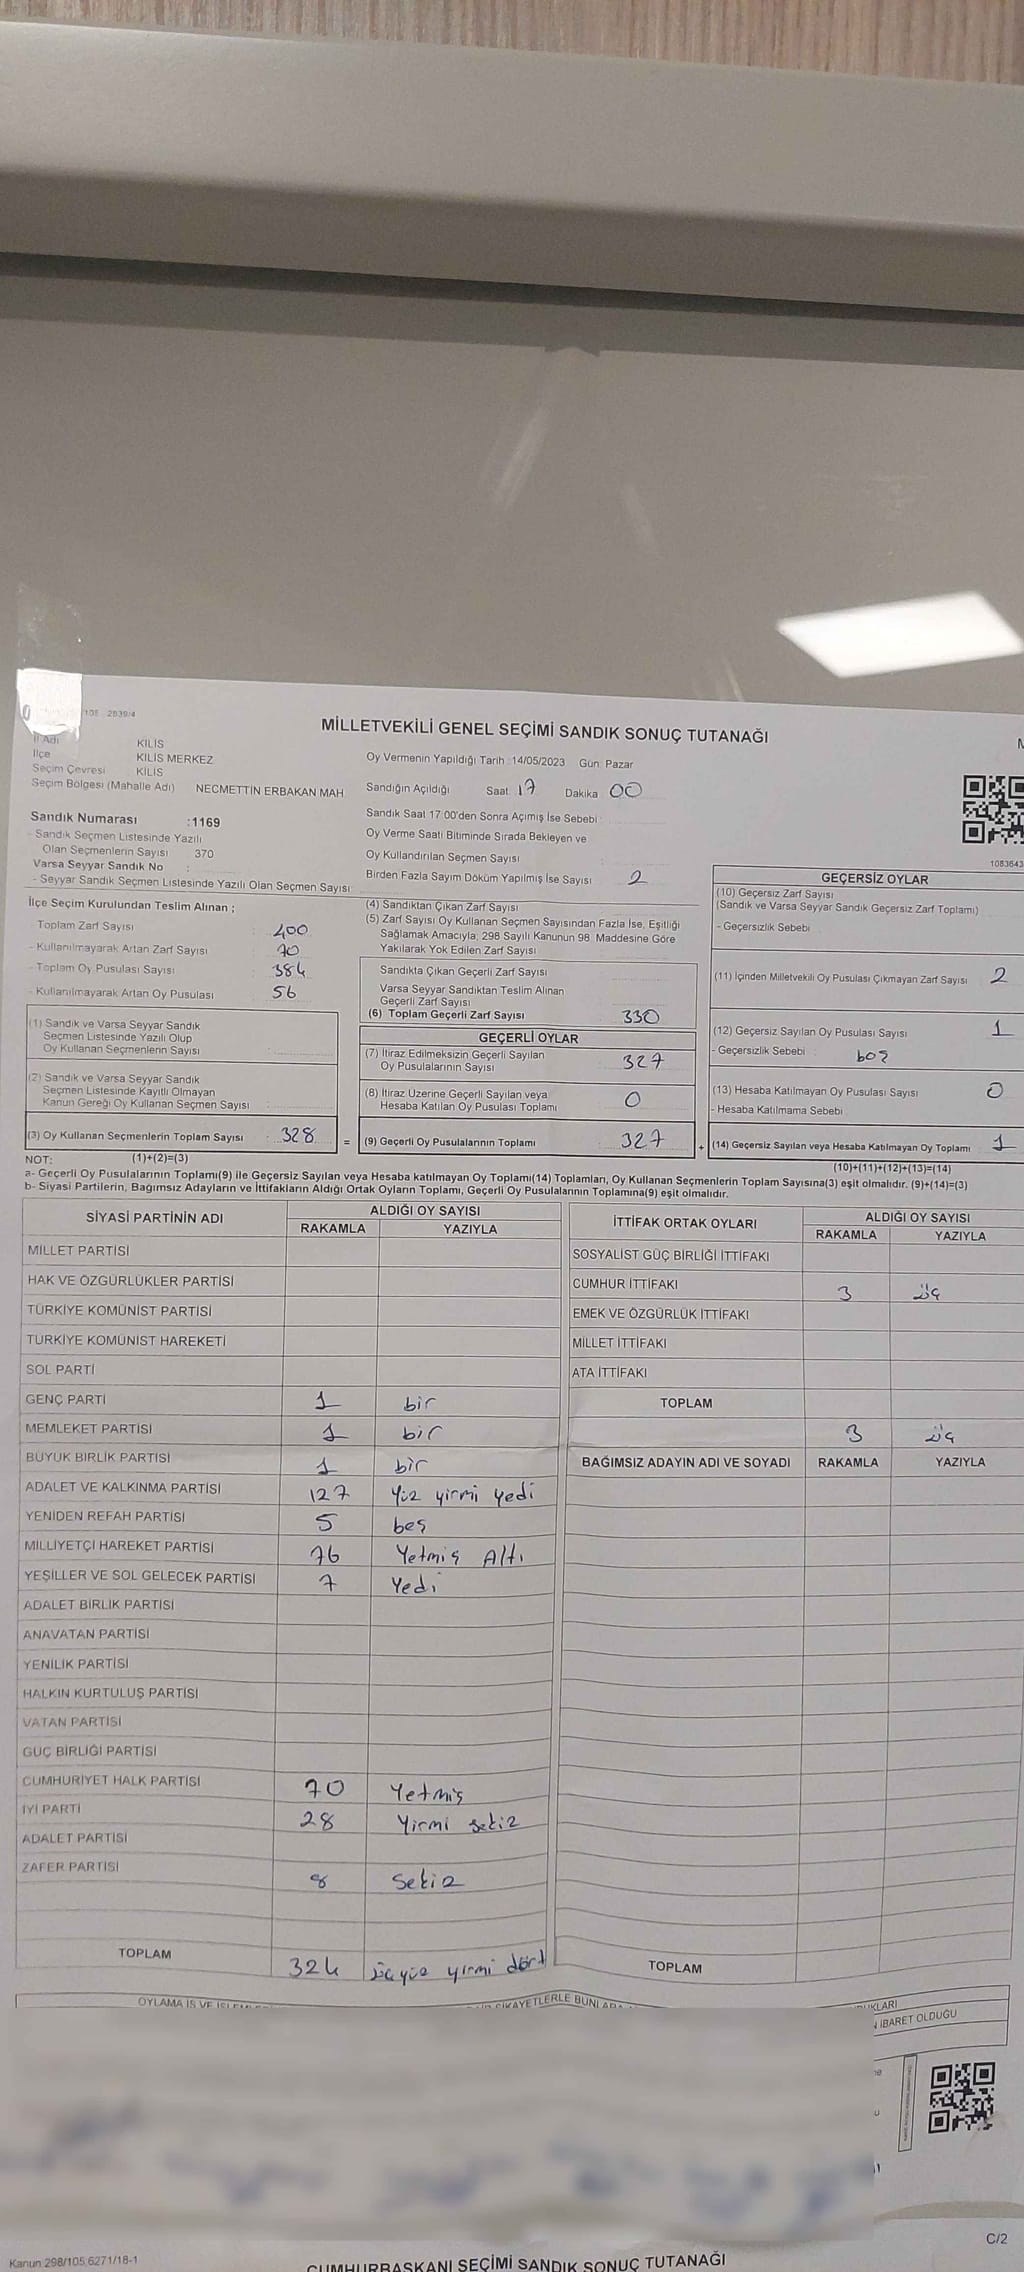 108 2839/4
MİLLETVEKİLİ GENEL SEÇİMİ SANDIK SONUÇ TUTANAĞI
İl Adı KİLİS
İlçe KİLİS MERKEZ
Seçim Çevresi KİLİS
Seçim Bölgesi (Mahalle Adı) NECMETTİN ERBAKAN MAH.
Oy Vermenin Yapıldığı Tarih : 14/05/2023 Gün: Pazar
Sandığın Açıldığı Saat 17 Dakika 00
Sandık Saat 17:00'den Sonra Açılmış İse Sebebi :
Oy Verme Saati Bitiminde Sırada Bekleyen ve
Oy Kullandırılan Seçmen Sayısı
Birden Fazla Sayım Döküm Yapılmış İse Sayısı 2
Sandık Numarası :1169
- Sandık Seçmen Listesinde Yazılı
Olan Seçmenlerin Sayısı 370
Varsa Seyyar Sandık No :
- Seyyar Sandık Seçmen Listesinde Yazılı Olan Seçmen Sayısı :
İlçe Seçim Kurulundan Teslim Alınan ;
Toplam Zarf Sayısı : 400
- Kullanılmayarak Artan Zarf Sayısı : 70
- Toplam Oy Pusulası Sayısı : 384
- Kullanılmayarak Artan Oy Pusulası : 56
(1) Sandık ve Varsa Seyyar Sandık
Seçmen Listesinde Yazılı Olup
Oy Kullanan Seçmenlerin Sayısı :
(2) Sandık ve Varsa Seyyar Sandık
Seçmen Listesinde Kayıtlı Olmayan
Kanun Gereği Oy Kullanan Seçmen Sayısı :
(3) Oy Kullanan Seçmenlerin Toplam Sayısı : 328 =
(4) Sandıktan Çıkan Zarf Sayısı
(5) Zarf Sayısı Oy Kullanan Seçmen Sayısından Fazla İse, Eşitliği
Sağlamak Amacıyla; 298 Sayılı Kanunun 98. Maddesine Göre
Yakılarak Yok Edilen Zarf Sayısı
Sandıkta Çıkan Geçerli Zarf Sayısı
Varsa Seyyar Sandıktan Teslim Alınan
Geçerli Zarf Sayısı
(6) Toplam Geçerli Zarf Sayısı 330
GEÇERLİ OYLAR
(7) İtiraz Edilmeksizin Geçerli Sayılan
Oy Pusulalarının Sayısı 327
(8) İtiraz Üzerine Geçerli Sayılan veya
Hesaba Katılan Oy Pusulası Toplamı 0
(9) Geçerli Oy Pusulalarının Toplamı 327 +
1083643
GEÇERSİZ OYLAR
(10) Geçersiz Zarf Sayısı
(Sandık ve Varsa Seyyar Sandık Geçersiz Zarf Toplamı)
- Geçersizlik Sebebi
(11) İçinden Milletvekili Oy Pusulası Çıkmayan Zarf Sayısı 2
(12) Geçersiz Sayılan Oy Pusulası Sayısı 1
- Geçersizlik Sebebi : boş
(13) Hesaba Katılmayan Oy Pusulası Sayısı 0
- Hesaba Katılmama Sebebi
(14) Geçersiz Sayılan veya Hesaba Katılmayan Oy Toplamı 1
NOT: (1)+(2)=(3) (10)+(11)+(12)+(13)=(14)
a- Geçerli Oy Pusulalarının Toplamı(9) ile Geçersiz Sayılan veya Hesaba katılmayan Oy Toplamı(14) Toplamları, Oy Kullanan Seçmenlerin Toplam Sayısına(3) eşit olmalıdır. (9)+(14)=(3)
b- Siyasi Partilerin, Bağımsız Adayların ve İttifakların Aldığı Ortak Oyların Toplamı, Geçerli Oy Pusulalarının Toplamına(9) eşit olmalıdır.
SİYASİ PARTİNİN ADI ALDIĞI OY SAYISI
RAKAMLA YAZIYLA
MİLLET PARTİSİ
HAK VE ÖZGÜRLÜKLER PARTİSİ
TÜRKİYE KOMÜNİST PARTİSİ
TÜRKİYE KOMÜNİST HAREKETİ
SOL PARTİ
GENÇ PARTİ 1 bir
MEMLEKET PARTİSİ 1 bir
BÜYÜK BİRLİK PARTİSİ 1 bir
ADALET VE KALKINMA PARTİSİ 127 Yüz yirmi yedi
YENİDEN REFAH PARTİSİ 5 beş
MİLLİYETÇİ HAREKET PARTİSİ 76 Yetmiş Altı
YEŞİLLER VE SOL GELECEK PARTİSİ 7 Yedi
ADALET BİRLİK PARTİSİ
ANAVATAN PARTİSİ
YENİLİK PARTİSİ
HALKIN KURTULUŞ PARTİSİ
VATAN PARTİSİ
GÜÇ BİRLİĞİ PARTİSİ
CUMHURİYET HALK PARTİSİ 70 Yetmiş
İYİ PARTİ 28 Yirmi sekiz
ADALET PARTİSİ
ZAFER PARTİSİ 8 Sekiz
TOPLAM 324 üçyüz yirmi dört
İTTİFAK ORTAK OYLARI ALDIĞI OY SAYISI
RAKAMLA YAZIYLA
SOSYALİST GÜÇ BİRLİĞİ İTTİFAKI
CUMHUR İTTİFAKI 3 üç
EMEK VE ÖZGÜRLÜK İTTİFAKI
MİLLET İTTİFAKI
ATA İTTİFAKI
TOPLAM
3 üç
BAĞIMSIZ ADAYIN ADI VE SOYADI RAKAMLA YAZIYLA
TOPLAM
OYLAMA İŞ VE
ŞİKAYETLERLE
İBARET OLDUĞU
C/2
Kanun 298/105,6271/18-1
CUMHURBAŞKANI SEÇİMİ SANDIK SONUÇ TUTANAĞI